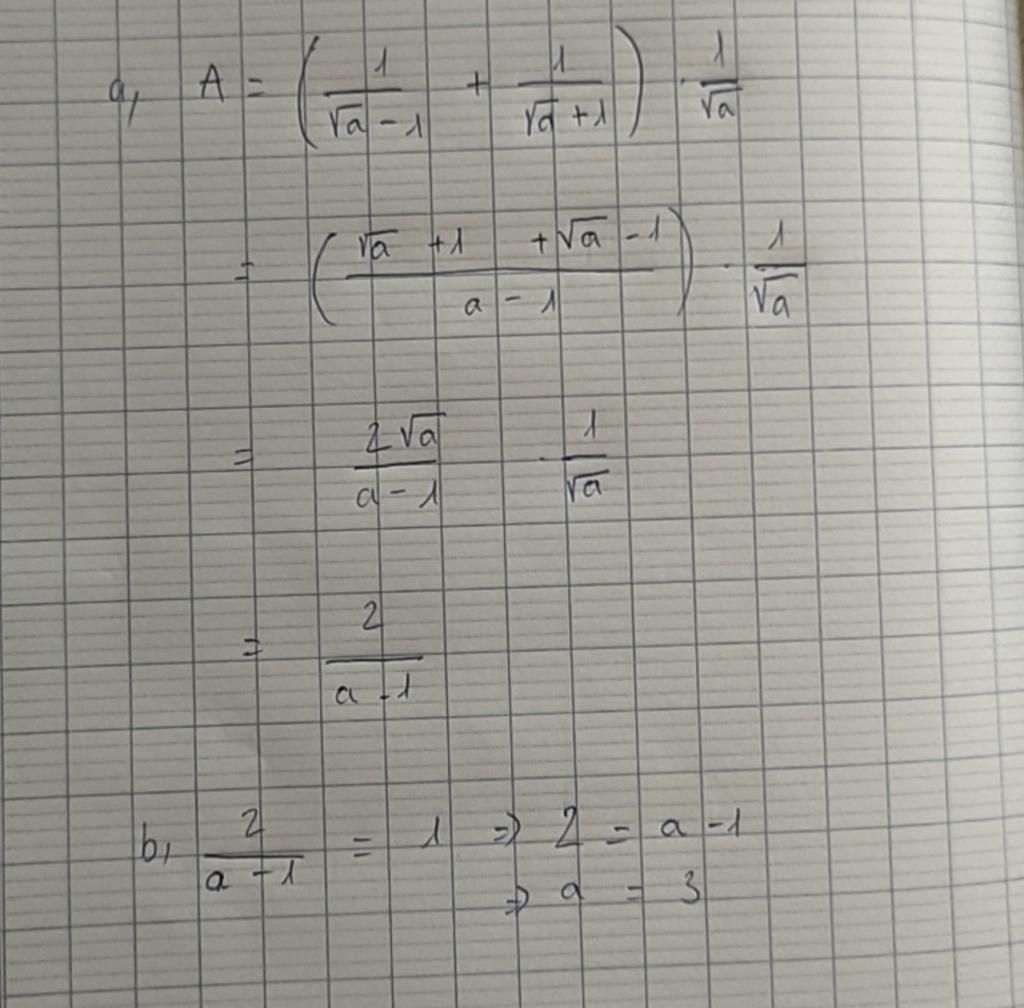 a, A = ( 1/(√a - 1) + 1/(√a + 1) ) · 1/√a
= ( (√a + 1 + √a - 1)/(a - 1) ) · 1/√a
= 2√a/(a - 1) · 1/√a
= 2/(a - 1)
b, 2/(a - 1) = 1 => 2 = a - 1
=> a = 3